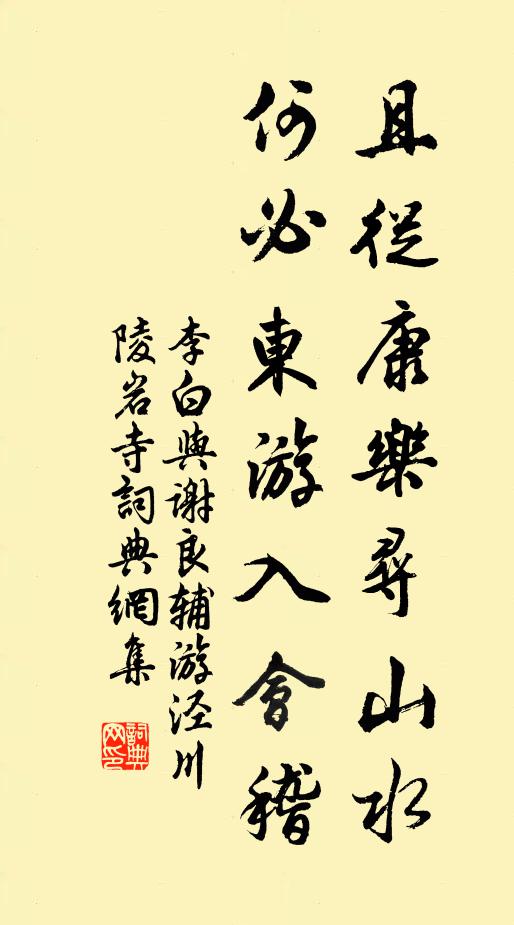 且從康樂尋山水
何必東游入會稽
李白與谢良辅游泾川
陵岩寺詞典網集
詞典网印